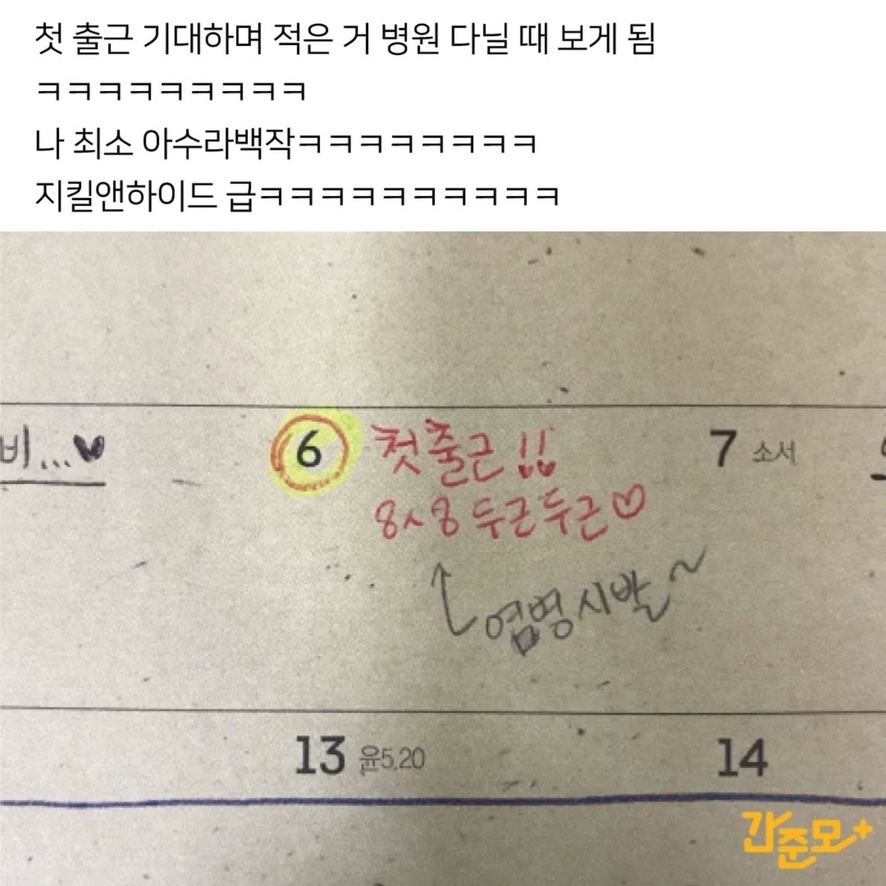 첫 출근 기대하며 적은 거 병원 다닐 때 보게 됨
ㅋㅋㅋㅋㅋㅋㅋㅋㅋ
나 최소 아수라백작ㅋㅋㅋㅋㅋㅋㅋㅋ
지킬앤하이드 급ㅋㅋㅋㅋㅋㅋㅋㅋㅋㅋ
비...♥
6 첫출근!!
8^8 두근두근♡
염병시발~
7 소서
13 윤5.20
14
간준모+